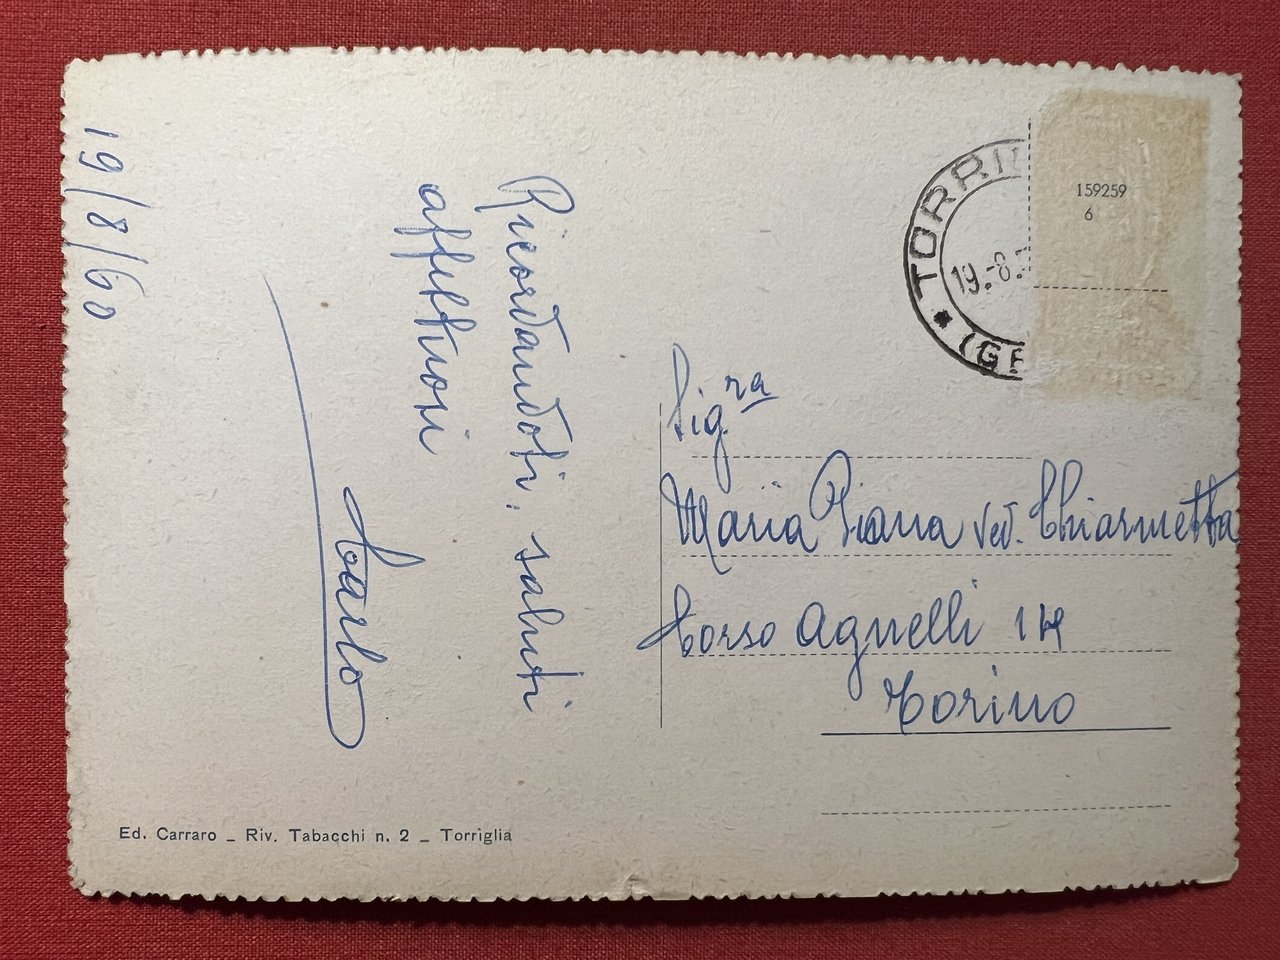 19/8/60
Ricordandoti, saluti
affettuosi
Carlo
TORRI
19.-8.
(GE
159259
6
Sig.ra
Maria Piana ved. Chiarmetta
Corso Agnelli 14
Torino
Ed. Carraro _ Riv. Tabacchi n. 2 _ Torrìglia